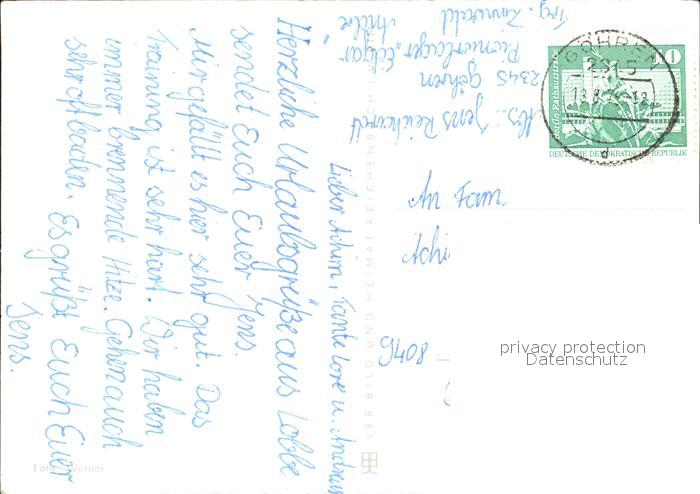 Lieber Achim, Tante Lore u. Andreas
Herzliche Urlaubsgrüße aus Lobbe
sendet Euch Euer Jens.
Mir gefällt es hier sehr gut. Das
Training ist sehr hart. Wir haben
immer brennende Hitze. Gehen auch
sehr oft baden. Es grüßt Euch Euer
Jens.
Foto: Werner
VEB BILD UND HEIMAT REICHENBACH
Abs.: Jens Reichardt
2345 Göhren
Pionierlager "Edgar
André"
Trg. Zinnwald
GÖHREN
2345
d
Berlin, Rathausstraße
1
DEUTSCHE DEMOKRATISCHE REPUBLIK
An Fam.
Achi
9408
privacy protection
Datenschutz